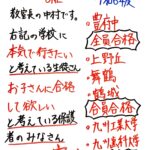 教室長の中村です。
右記の学校に
本気で行きたい
と考えている生徒さん
お子さんに合格
して欲しい
と考えている保護
者のみなさん
・豊府中
全員合格
・上野丘
・舞鶴
・鶴城
全員合格
・九州工業大学
・九州歯科大学